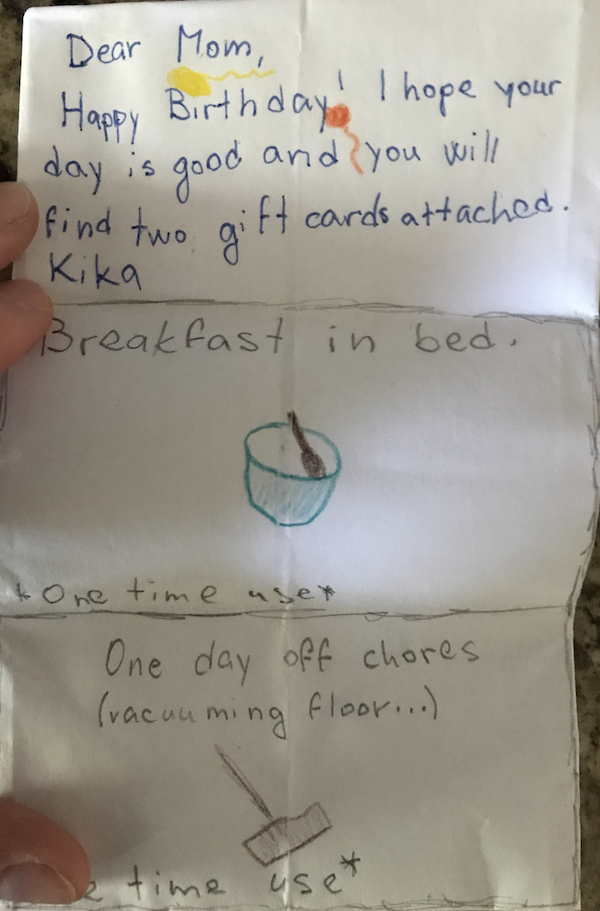 Dear Mom,
Happy Birthday! I hope your
day is good and you will
find two gift cards attached.
Kika
Breakfast in bed.
*One time use*
One day off chores
(vacuuming floor...)
time use*